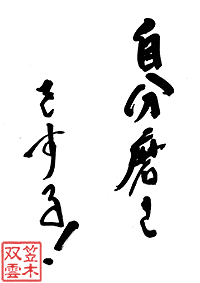 自分磨き
をする!
笠木
双雲